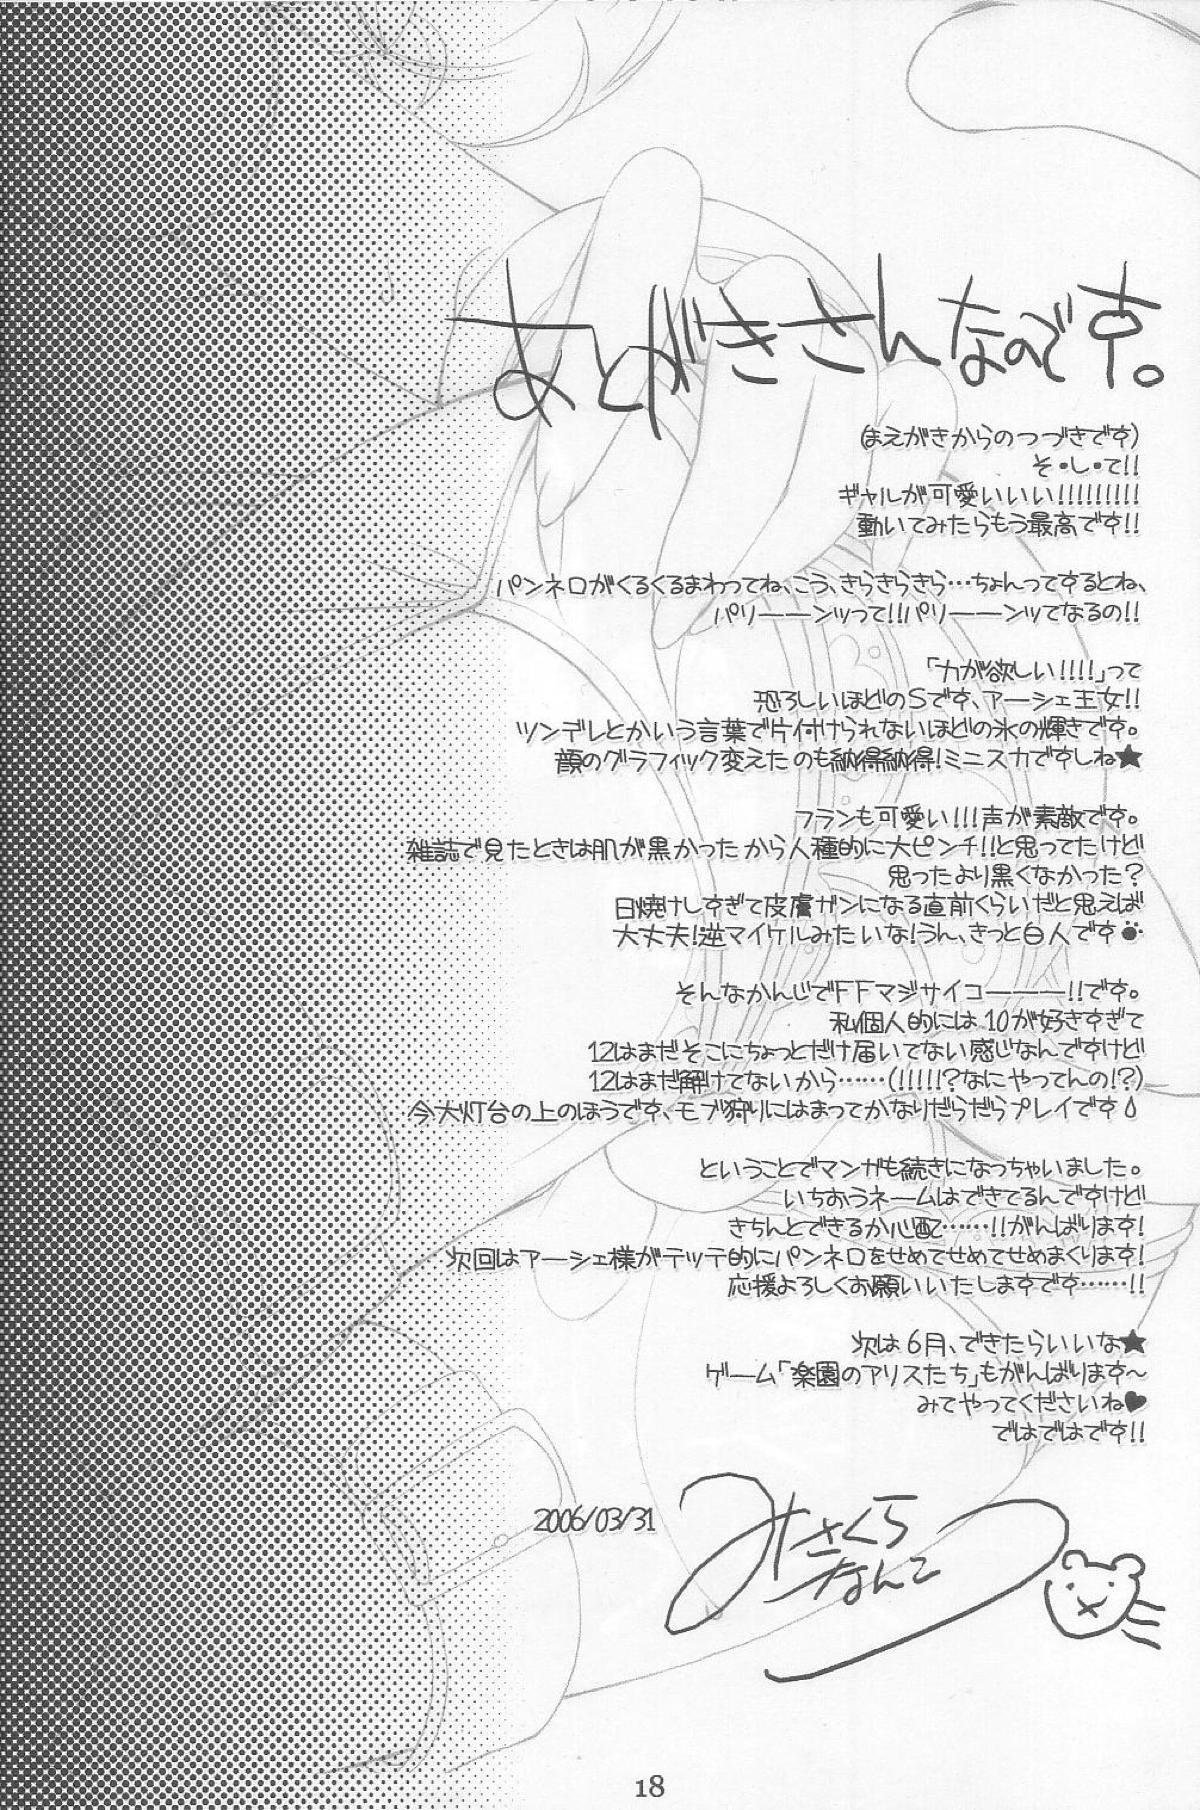 あとがきさんなのです。
(まえがきからのつづきです)
そ・し・て!!
ギャルが可愛いいい!!!!!!!!!
動いてみたらもう最高です!!
パンネロがくるくるまわってね、こう、きらきらきら…ちょんってするとね、
パリーーンッって!!パリーーンッてなるの!!
「力が欲しい!!!!」って
恐ろしいほどのSです、アーシェ王女!!
ツンデレとかいう言葉で片付けられないほどの氷の輝きです。
顔のグラフィック変えたのも納得納得!ミニスカですしね★
フランも可愛い!!!声が素敵です。
雑誌で見たときは肌が黒かったから人種的に大ピンチ!!と思ってたけど
思ったより黒くなかった?
日焼けしすぎて皮膚ガンになる直前くらいだと思えば
大丈夫!逆マイケルみたいな!うん、きっと白人です
そんなかんじでFFマジサイコーーー!!です。
私個人的には10が好きすぎて
12はまだそこにちょっとだけ届いてない感じなんですけど
12はまだ解けてないから……(!!!!!?なにやってんの!?)
今大灯台の上のほうです、モブ狩りにはまってかなりだらだらプレイです
ということでマンガも続きになっちゃいました。
いちおうネームはできてるんですけど
きちんとできるか心配……!!がんばります!
次回はアーシェ様がテッテ的にパンネロをせめてせめてせめまくります!
応援よろしくお願いいたしますです……!!
次は6月、できたらいいな★
ゲーム「楽園のアリスたち」もがんばります～
みてやってくださいね♥
ではではです!!
2006/03/31
みさくら
なんこつ
18